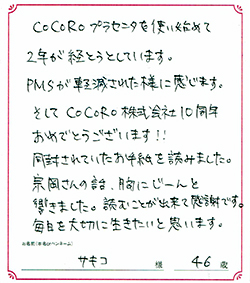 COCORO プラセンタを使い始めて
2年が経とうとしています。
PMSが軽減された様に感じます。
そして COCORO 株式会社10周年
おめでとうございます!!
同封されていたお手紙を読みました。
宗岡さんの話、胸にじーんと
響きました。読むことが出来て感謝です。
毎日を大切に生きたいと思います。
お名前(※ペンネーム)
サキコ 様 46 歳